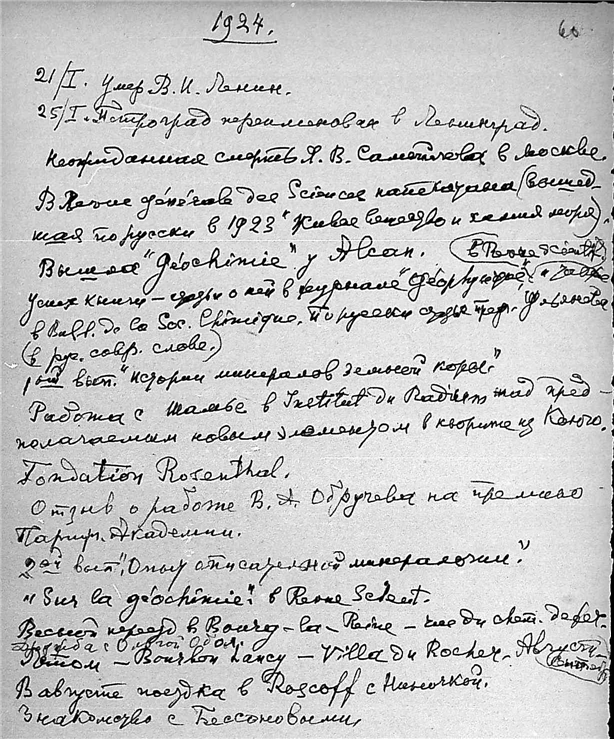 1924.
60
21/I. умер В. И. Ленин.
25/I. Петроград переименован в Ленинград.
Неожиданная смерть Я. В. Самойлова в Москве.
В Revue générale des Sciences напечатана (вышед-
шая по русски в 1923 "Живое вещество и химия моря").
Вышла "Géochimie" у Alcan. (в Revue Scientif.)
Успех книги – в журнале
в Bull. de la Soc. Chimique. По русски
(в рус. совр. слове.)
1ый вып. "Истории минералов земной коры."
Работа с Шамье в Institut du Radium над пред-
полагаемым новым элементом в кюрите из Конго.
Fondation Rosenthal.
Отзыв о работе В. А. Обручева на премию
Париж. Академии.
2ой вып. "Опыт описательной минералогии."
"Sur la géochimie". в Revue Scient.
Весной переезд в Bourg-la-Reine – rue du chem. de fer.
Дружба с Ольгой
Потом – Bourbon Lancy – Villa du Rocher. Август
В августе поездка в Roscoff с Ниночкой.
Знакомство с Бессоновыми,